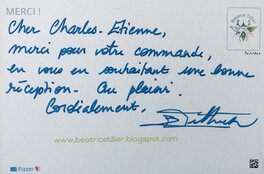 MERCI !
Cher Charles-Etienne,
merci pour votre commande,
en vous en souhaitant une bonne
réception. Au plaisir.
Cordialement,
www.beatricetillier.blogspot.com
Fizzer